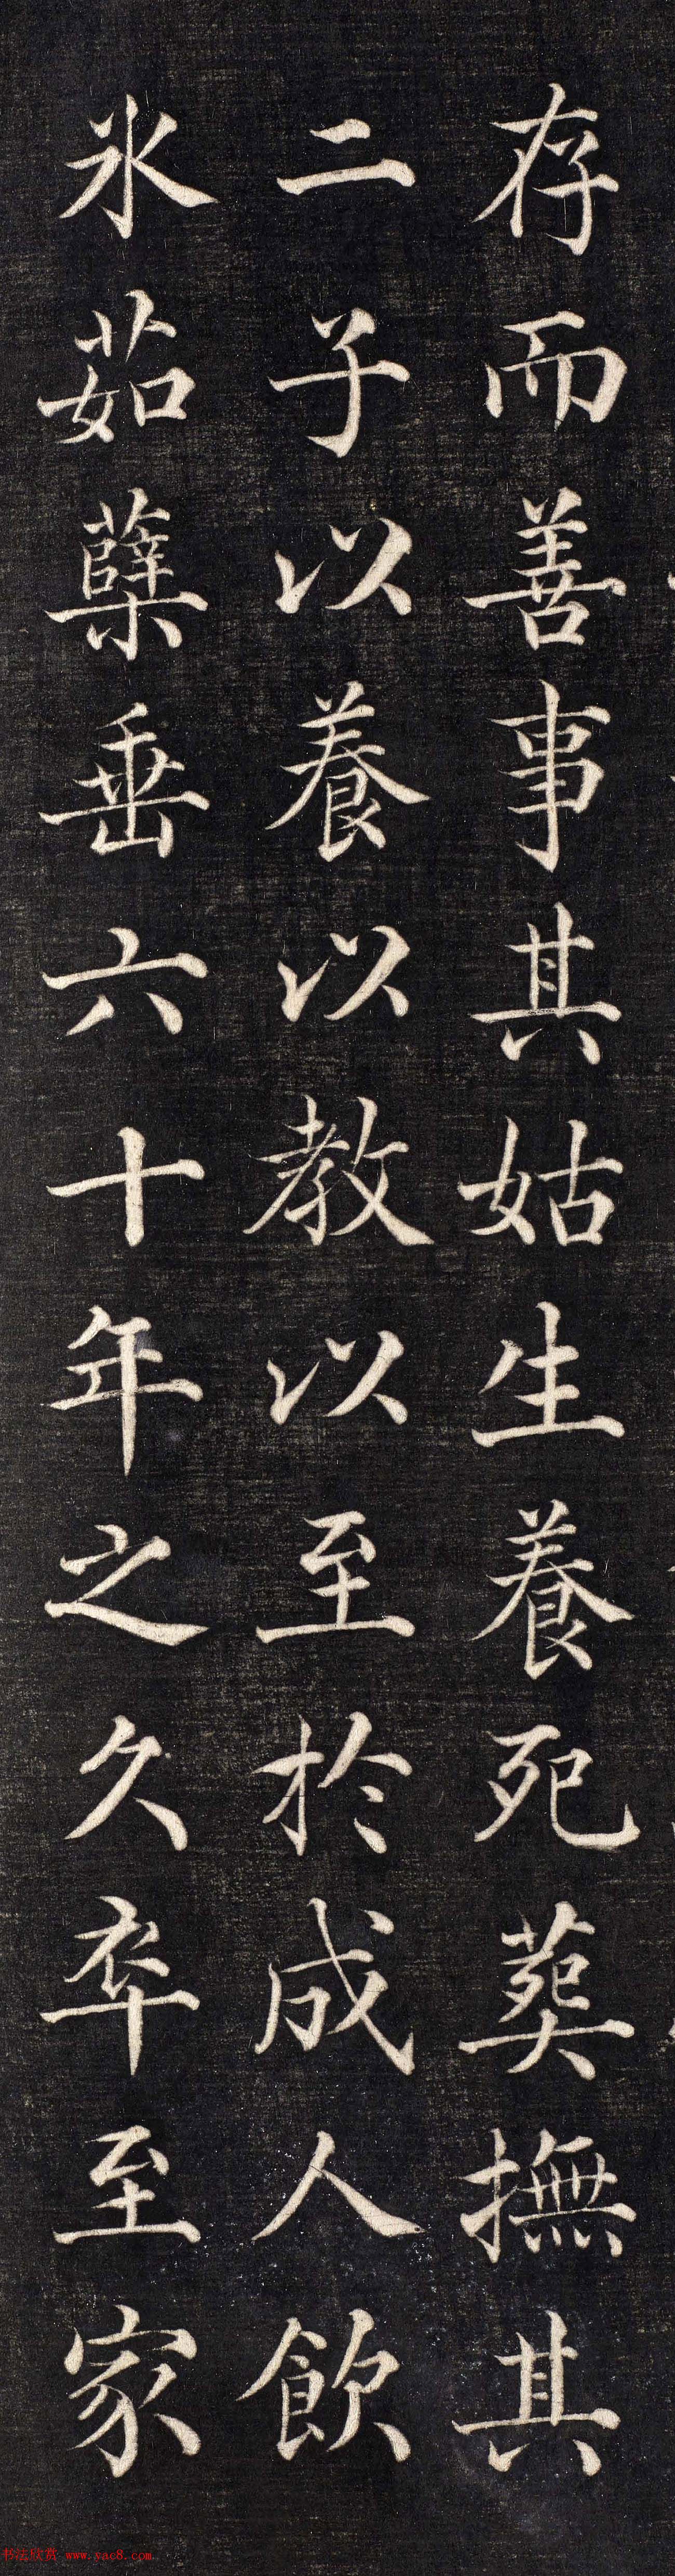 存而善事其姑生養死葬撫其
二子以養以教以至於成人飲
氷茹蘖垂六十年之久卒至家
书法欣赏 www.yac8.com